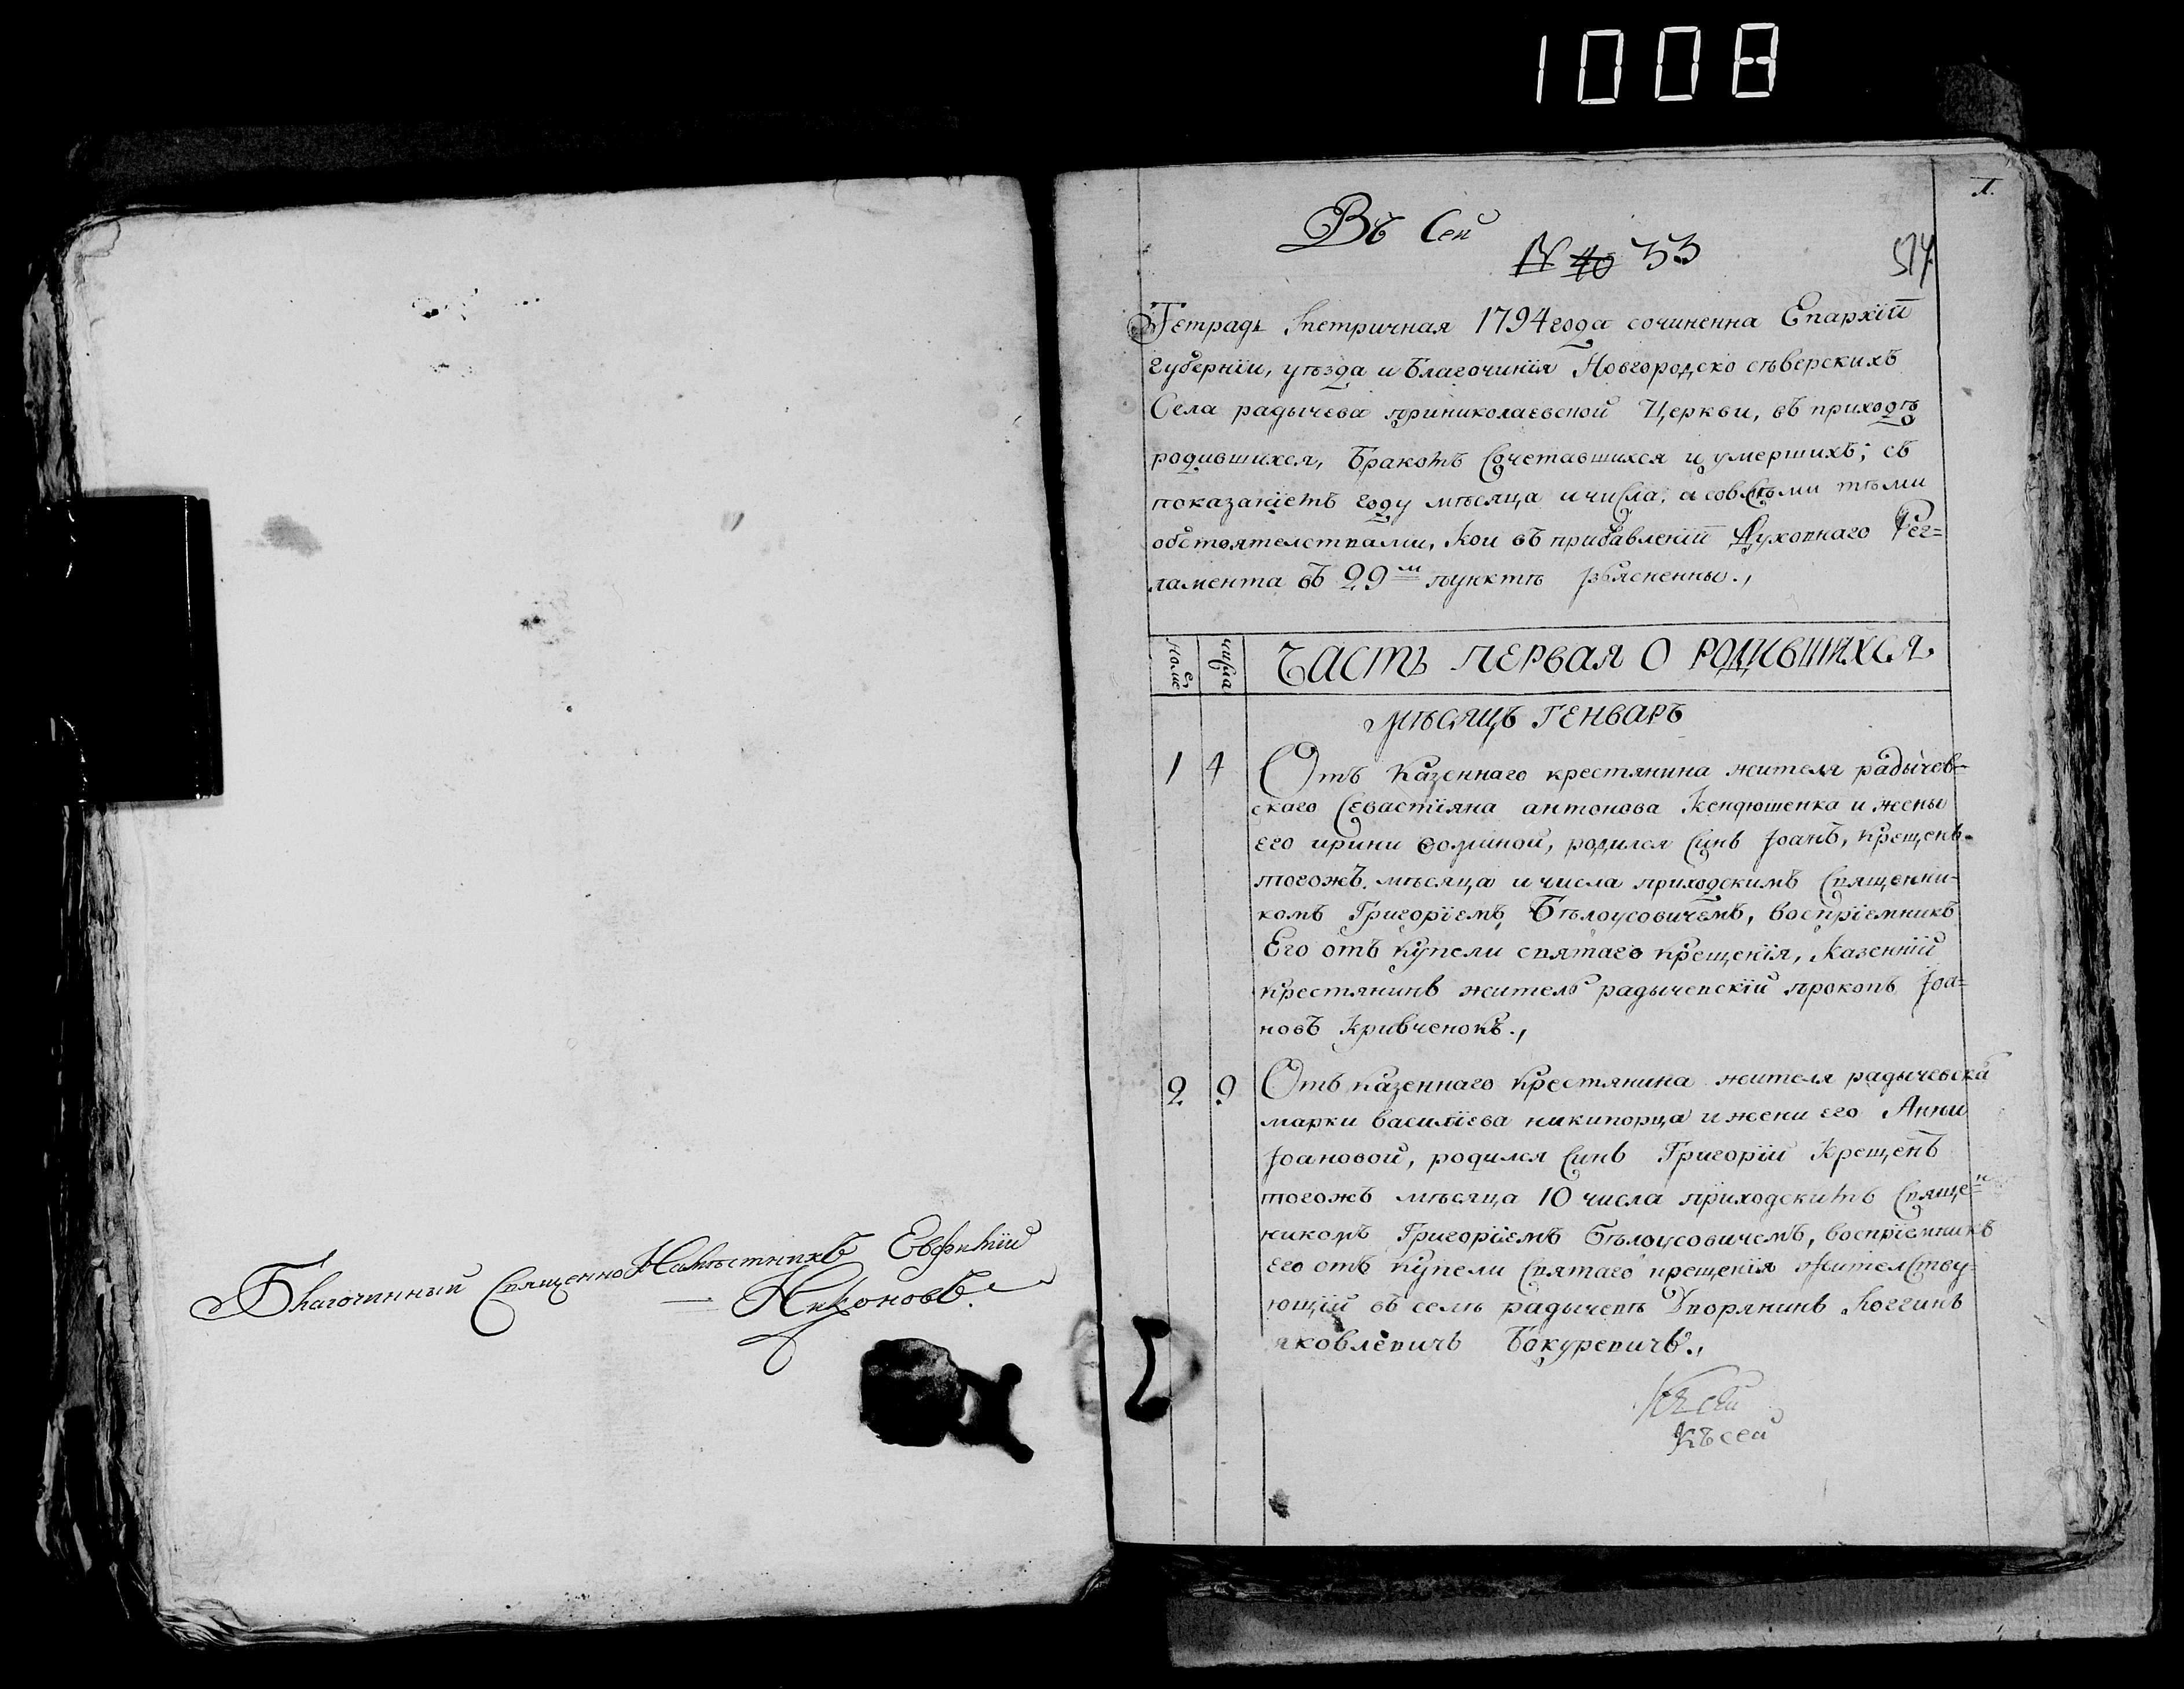 1008
Благочинный Священнонамѣстникъ Евфимій
Никоновъ.
1.
Въ Сей
№ 40 33
514
Тетрадь Метричная 1794 года сочиненна Епархіи
Губерніи, уѣзда и Благочинія Новгородско сѣверскихъ
Села радычева приниколаевской Церкви, въ приходѣ
родившихся, Бракомъ Сочетавшихся и умершихъ; съ
показаніемъ году мѣсяца и числа, и совсѣми тѣми
обстоятелствами, кои въ прибавленіи Духовнаго Рег=
ламента въ 29м пунктѣ изясненны.,
Номе числа ЧАСТЬ ПЕРВАЯ О РОДИВШИХСЯ
ег
МѢСЯЦЪ ГЕНВАРЬ
1 4 Отъ Казеннаго крестянина жителя радычев-
скаго Севастіяна антонова Кендюшенка и жены
его ирини ѳоминой, родился Синъ Іоанъ, крещенъ
тогожъ мѣсяца и числа приходскимъ Священни-
комъ Григоріемъ Бѣлоусовичемъ, воспріемникъ
Его отъ купели святаго крещенія, Казенній
крестянинъ житель радычевскій прокопъ Іоа=
новъ Кривченокъ.,
2 9 Отъ казеннаго крестянина жителя радычевска
марки василіева никипорца и жени его Анни
Іоановой, родился Синъ Григорій Крещенъ
тогожъ мѣсяца 10 числа приходскимъ Свяще=н
никомъ Григоріемъ Бѣлоусовичемъ, воспріемникъ
его отъ купели Святаго крещенія жителству=
ющій въ селѣ радычевѣ Дворянинъ
яковлевичъ Бакуревичъ.,
Къ сей
Къ сей